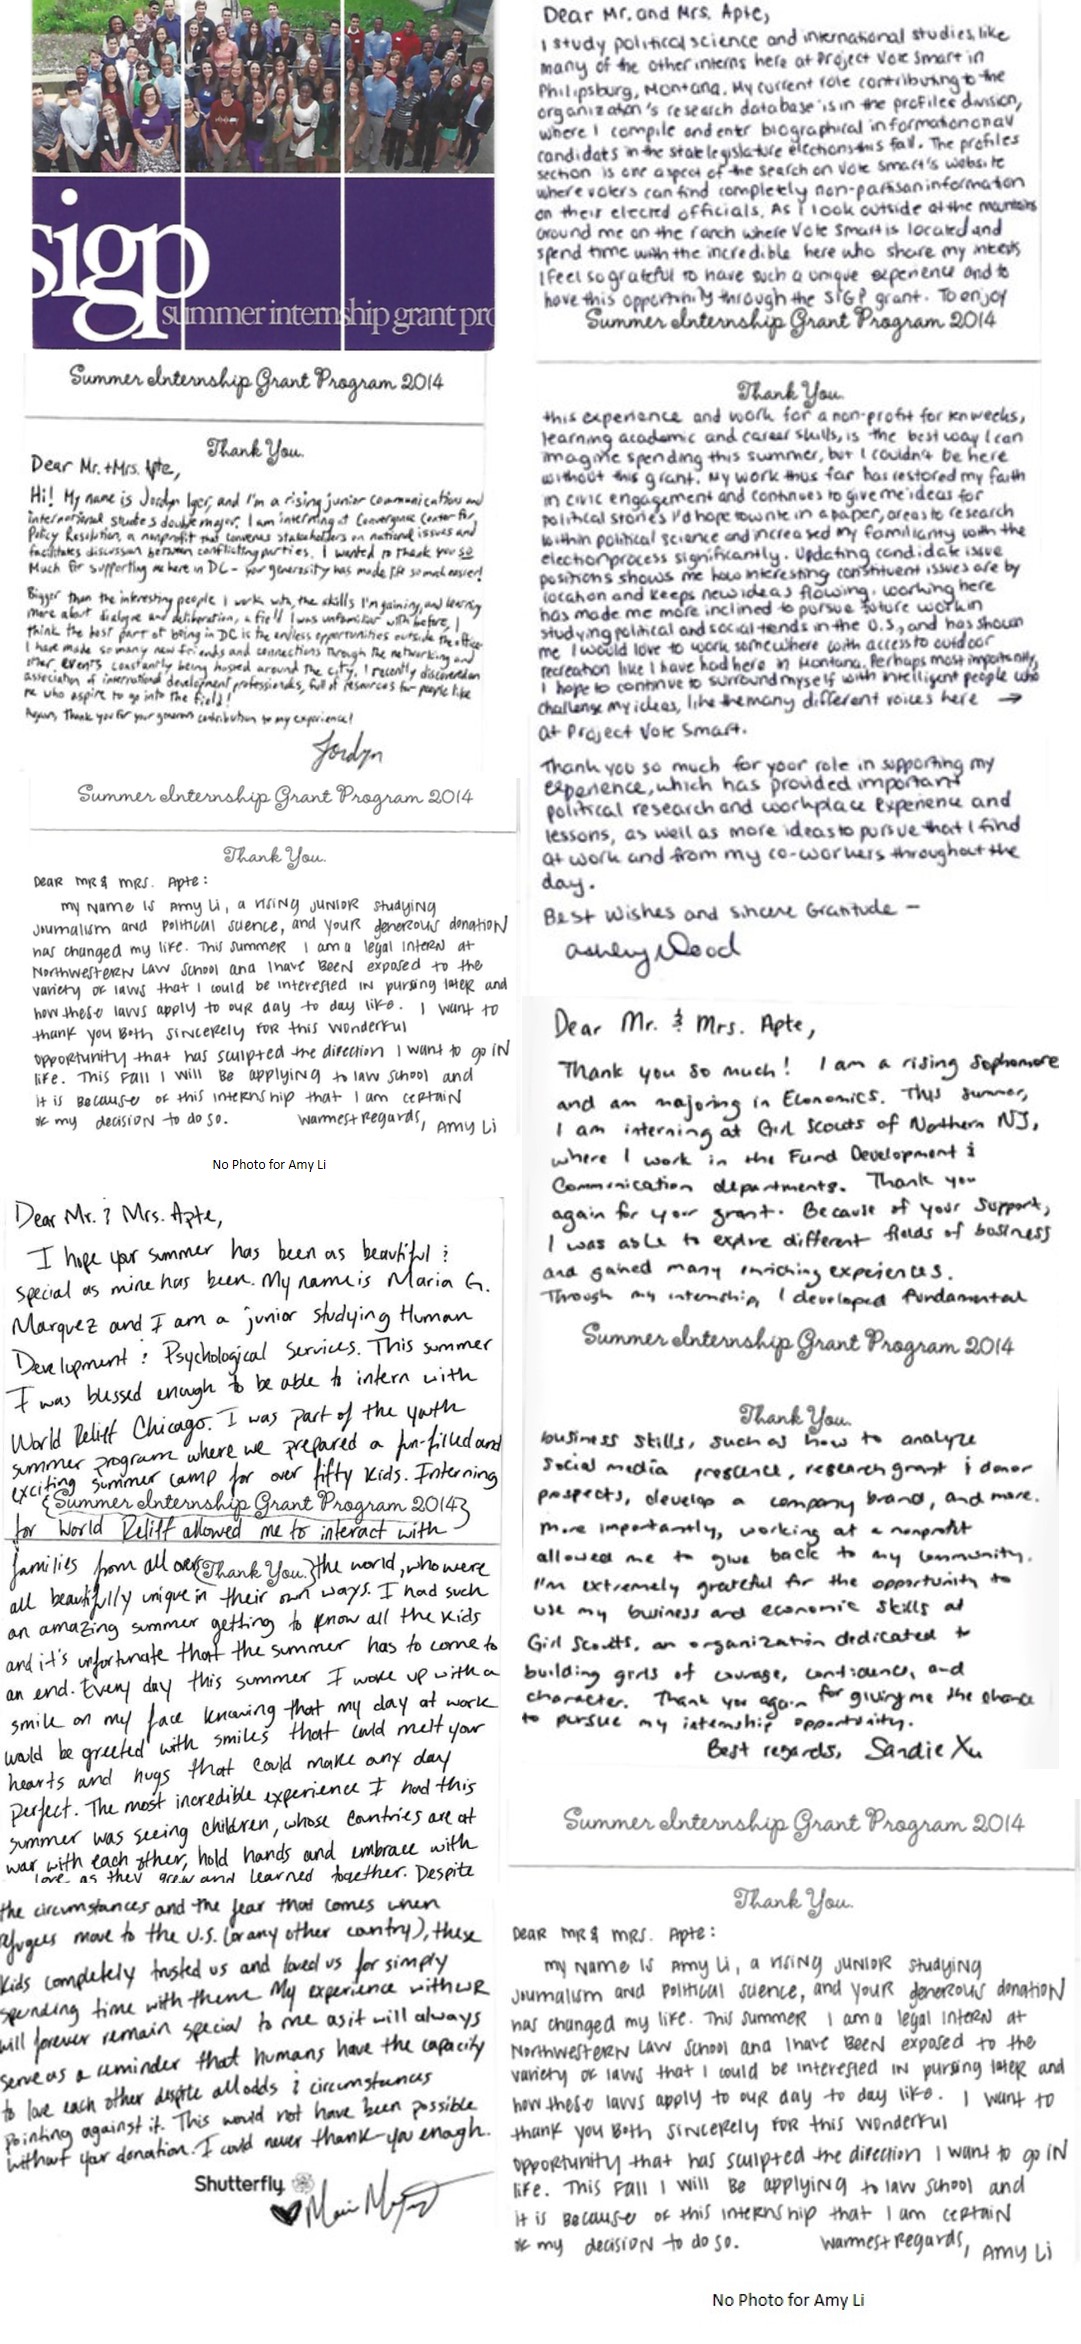 sigp
summer internship grant pro
Summer Internship Grant Program 2014
Thank You.
Dear Mr. + Mrs. Apte,
Hi! My name is Jordyn Iger, and I'm a rising junior communications and
international studies double major. I am interning at Convergence Center for
Policy Resolution, a nonprofit that convenes stakeholders on national issues and
facilitates discussion between conflicting parties. I wanted to thank you so
much for supporting me here in DC - your generosity has made life so much easier!
Bigger than the interesting people I work with, the skills I'm gaining, and learning
more about dialogue and deliberation, a field I was unfamiliar with before, I
think the best part of being in DC is the endless opportunities outside the office.
I have made so many new friends and connections through the networking and
other events constantly being hosted around the city. I recently discovered an
association of international development professionals, full of resources for people like
me who aspire to go into the field!
Again, Thank you for your generous contribution to my experience!
Jordyn
Summer Internship Grant Program 2014
Thank You.
Dear Mr & Mrs. Apte:
my name is Amy Li, a rising junior studying
journalism and political science, and your generous donation
has changed my life. This summer I am a legal intern at
Northwestern Law School and I have been exposed to the
variety of laws that I could be interested in pursing later and
how these laws apply to our day to day life. I want to
thank you both sincerely for this wonderful
opportunity that has sculpted the direction I want to go in
life. This fall I will be applying to law school and
it is because of this internship that I am certain
of my decision to do so. Warmest Regards, Amy Li
No Photo for Amy Li
Dear Mr. & Mrs. Apte,
I hope your summer has been as beautiful &
special as mine has been. My name is Maria G.
Marquez and I am a junior studying Human
Development & Psychological Services. This summer
I was blessed enough to be able to intern with
World Relief Chicago. I was part of the youth
summer program where we prepared a fun-filled and
exciting summer camp for over fifty kids. Interning
Summer Internship Grant Program 2014
for World Relief allowed me to interact with
families from all over Thank You. the world, who were
all beautifully unique in their own ways. I had such
an amazing summer getting to know all the kids
and it's unfortunate that the summer has to come to
an end. Every day this summer I woke up with a
smile on my face knowing that my day at work
would be greeted with smiles that could melt your
hearts and hugs that could make any day
perfect. The most incredible experience I had this
summer was seeing children, whose countries are at
war with each other, hold hands and embrace with
love as they grew and learned together. Despite
the circumstances and the fear that comes when
refugees move to the U.S. (or any other country), these
kids completely trusted us and loved us for simply
spending time with them. My experience with WR
will forever remain special to me as it will always
serve as a reminder that humans have the capacity
to love each other despite all odds & circumstances
pointing against it. This would not have been possible
without your donation. I could never thank-you enough.
Shutterfly
Dear Mr. and Mrs. Apte,
I study political science and international studies, like
many of the other interns here at Project Vote Smart in
Philipsburg, Montana. My current role contributing to the
organization's research database is in the profiles division,
where I compile and enter biographical information on all
candidats in the state legislature elections this fall. The profiles
section is one aspect of the search on Vote Smart's website
where voters can find completely non-partisan information
on their elected officials. As I look outside at the mountains
around me on the ranch where Vote Smart is located and
spend time with the incredible here who share my interests
I feel so grateful to have such a unique experience and to
have this opportunity through the SIGP grant. To enjoy
Summer Internship Grant Program 2014
Thank You.
this experience and work for a non-profit for ten weeks,
learning academic and career skills, is the best way I can
imagine spending this summer, but I couldn't be here
without this grant. My work thus far has restored my faith
in civic engagement and continues to give me ideas for
political stories I'd hope to write in a paper, areas to research
within political science and increased my familiarity with the
election process significantly. Updating candidate issue
positions shows me how interesting constituent issues are by
location and keeps new ideas flowing. Working here
has made me more inclined to pursue future work in
studying political and social tends in the U.S., and has shown
me I would love to work somewhere with access to outdoor
recreation like I have had here in Montana. Perhaps most importantly,
I hope to continue to surround myself with intelligent people who
challenge my ideas, like the many different voices here →
at Project Vote Smart.
Thank you so much for your role in supporting my
experience, which has provided important
political research and workplace experience and
lessons, as well as more ideas to pursue that I find
at work and from my co-workers throughout the
day.
Best Wishes and Sincere Gratitude -
Ashley Wood
Dear Mr. & Mrs. Apte,
Thank you so much! I am a rising Sophomore
and am majoring in Economics. This summer,
I am interning at Girl Scouts of Northern NJ,
where I work in the Fund Development &
Communication departments. Thank you
again for your grant. Because of your support,
I was able to explore different fields of business
and gained many enriching experiences.
Through my internship, I developed fundamental
Summer Internship Grant Program 2014
Thank You.
business skills, such as how to analyze
social media prescence, research grant & donor
prospects, develop a company brand, and more.
More importantly, working at a nonprofit
allowed me to give back to my community.
I'm extremely grateful for the opportunity to
use my business and economic skills at
Girl Scouts, an organization dedicated to
building girls of courage, confidence, and
character. Thank you again for giving me the chance
to pursue my internship opportunity.
Best regards, Sandie Xu
Summer Internship Grant Program 2014
Thank You.
Dear Mr & Mrs. Apte:
my name is Amy Li, a rising junior studying
journalism and political science, and your generous donation
has changed my life. This summer I am a legal intern at
Northwestern Law School and I have been exposed to the
variety of laws that I could be interested in pursing later and
how these laws apply to our day to day life. I want to
thank you both sincerely for this wonderful
opportunity that has sculpted the direction I want to go in
life. This fall I will be applying to law school and
it is because of this internship that I am certain
of my decision to do so. Warmest Regards, Amy Li
No Photo for Amy Li